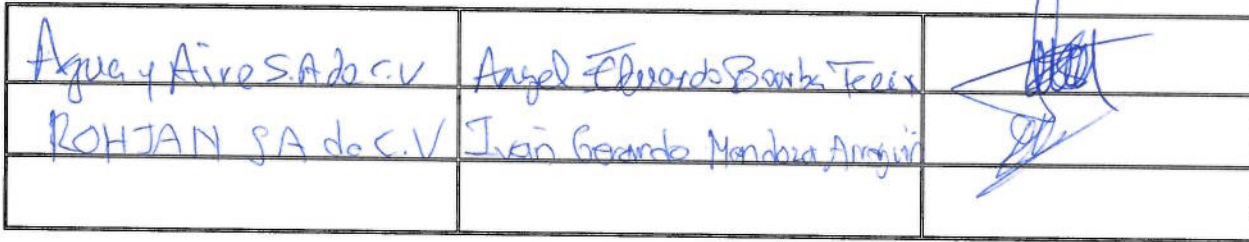 Agua y Aire S.A de C.V Angel Eduardo Barba
ROHJAN SA de C.V Iván Gerardo Mendoza